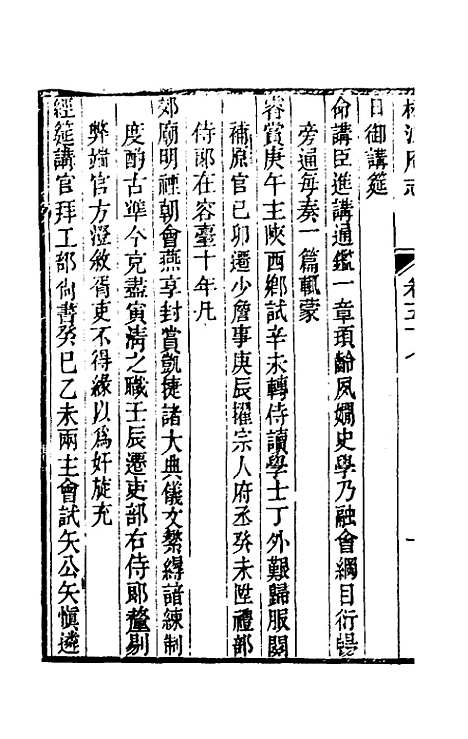 松江府志 卷五十八
日御講筵
命講臣進講通鑑一章頊齡夙嫺史學乃融會綱目衍暢
旁通每奏一篇輒蒙
睿賞庚午主陝西鄉試辛未轉侍讀學士丁外艱歸服闋
補原官己卯遷少詹事庚辰擢宗人府丞癸未陞禮部
侍郎在容臺十年凡
郊廟明禋朝會燕享封賞凱捷諸大典儀文繁縟諳練制
度酌古準今克盡寅清之職壬辰遷吏部右侍郎釐剔
弊端官方澄敘胥吏不得緣以爲奸旋充
經筵講官拜工部尚書癸巳乙未兩主會試矢公矢愼遴